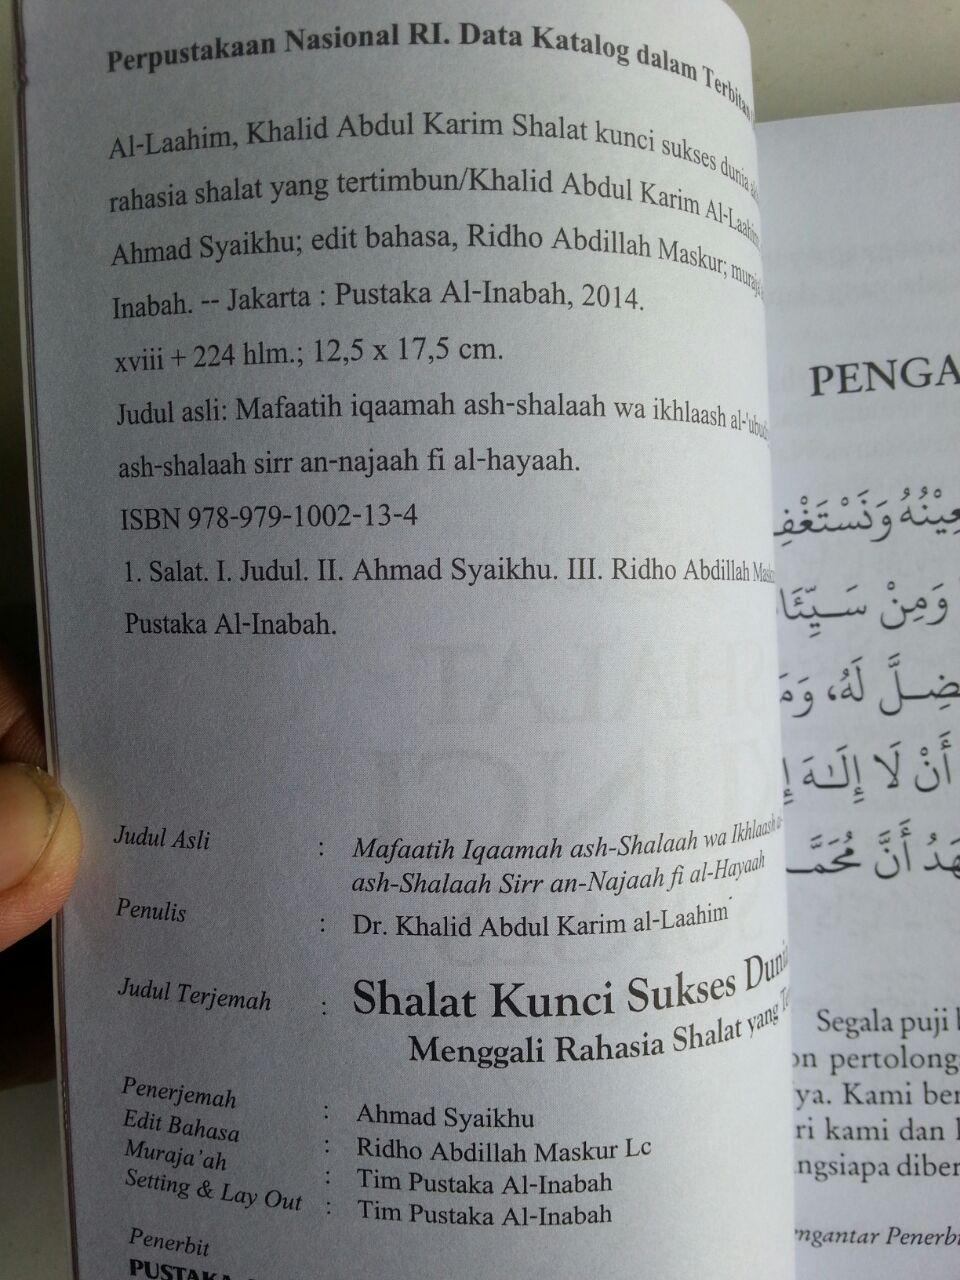 Perpustakaan Nasional RI. Data Katalog dalam Terbitan
Al-Laahim, Khalid Abdul Karim Shalat kunci sukses dunia
rahasia shalat yang tertimbun/Khalid Abdul Karim Al-Laahim
Ahmad Syaikhu; edit bahasa, Ridho Abdillah Maskur;
Inabah. -- Jakarta : Pustaka Al-Inabah, 2014.
xviii + 224 hlm.; 12,5 x 17,5 cm.
Judul asli: Mafaatih iqaamah ash-shalaah wa ikhlaash
ash-shalaah sirr an-najaah fi al-hayaah.
ISBN 978-979-1002-13-4
1. Salat. I. Judul. II. Ahmad Syaikhu. III. Ridho Abdillah
Pustaka Al-Inabah.
Judul Asli : Mafaatih Iqaamah ash-Shalaah wa Ikhlaash
ash-Shalaah Sirr an-Najaah fi al-Hayaah
Penulis : Dr. Khalid Abdul Karim al-Laahim
Judul Terjemah : Shalat Kunci Sukses Dunia
Menggali Rahasia Shalat yang
Penerjemah : Ahmad Syaikhu
Edit Bahasa : Ridho Abdillah Maskur Lc
Muraja'ah : Tim Pustaka Al-Inabah
Setting & Lay Out : Tim Pustaka Al-Inabah
Penerbit
PUSTAKA
PENGA
وَنَسْتَغْفِ
وَمِنْ سَيِّئَا
لَهُ، وَمَ
أَنْ لَا إِلَـٰهَ
أَنَّ مُحَمَّـ
Segala puji
on pertolong
ya. Kami
ri kami dan
ngsiapa diber
ngantar Penerb